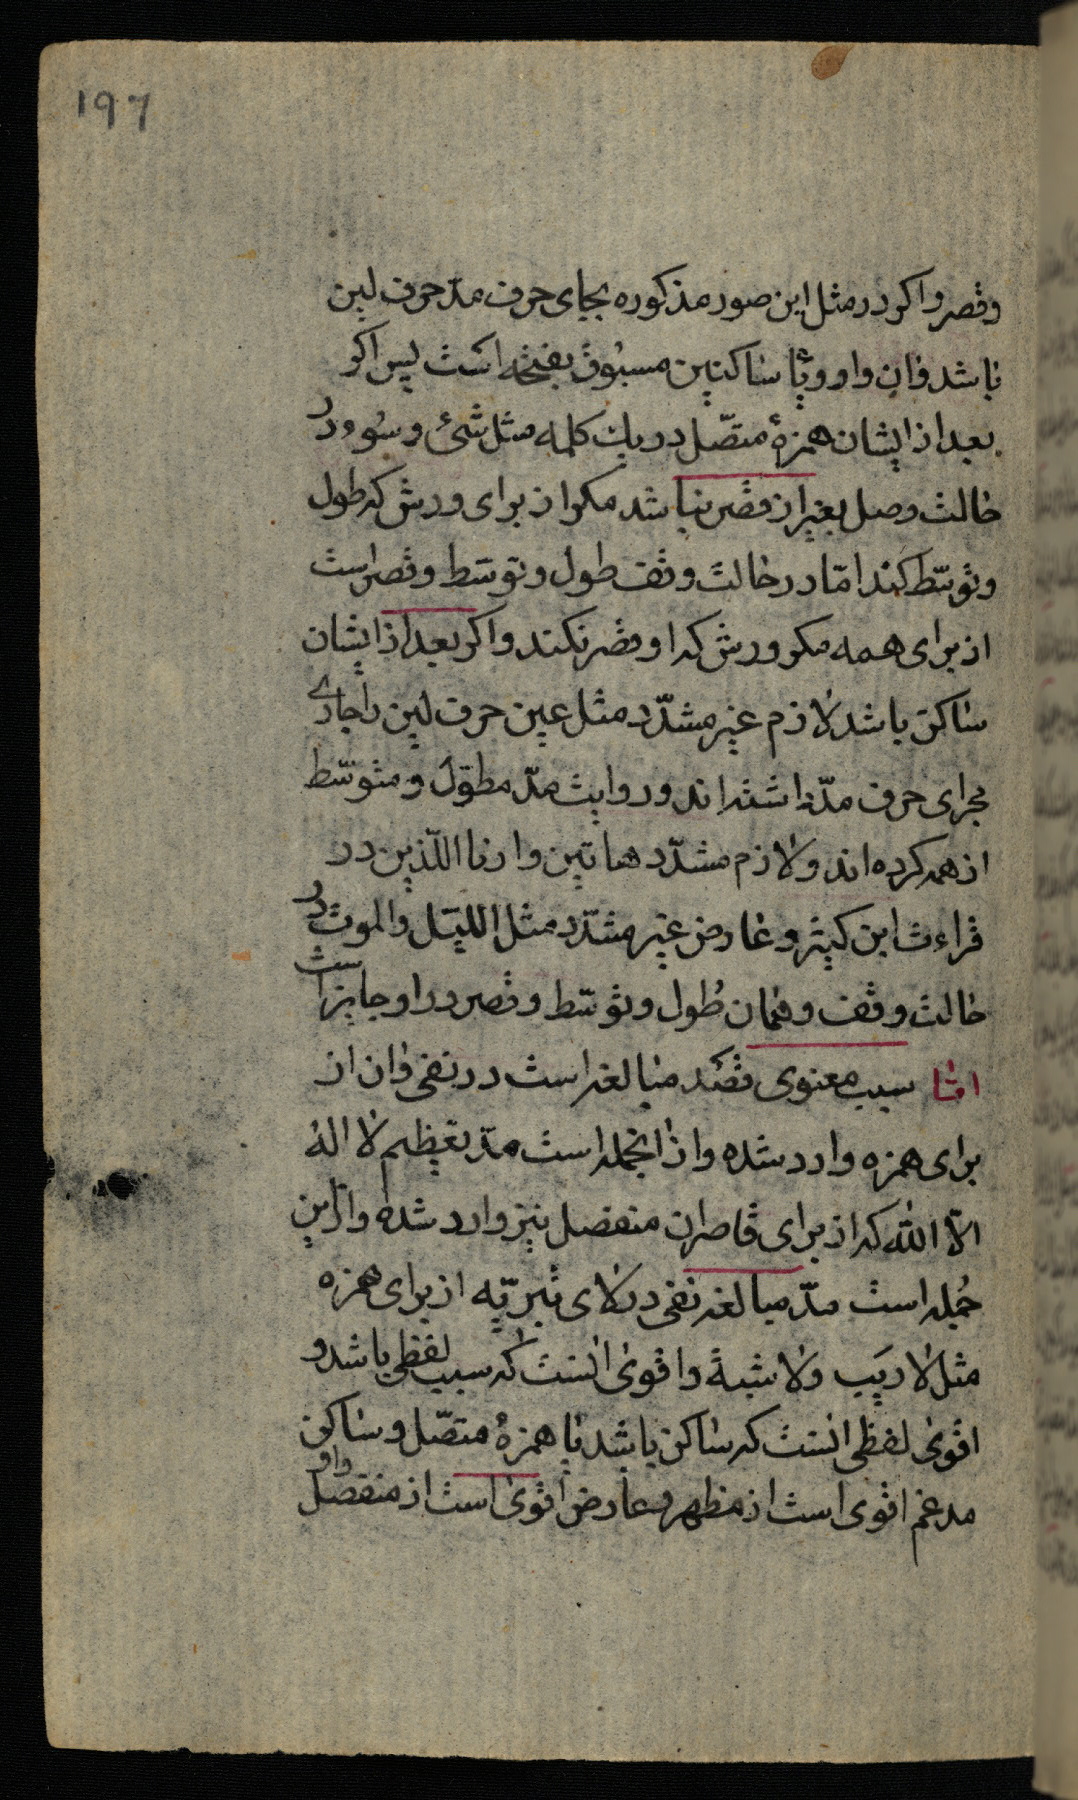 ۱۹۶
وقصر واكر در مثل اين صور مذكوره بجاى حرف مدّ حرف لين
باشد وان واو ويا ساكنين مسبوق بفتحه است پس اكر
بعد از ايشان همزهٔ متصّل در يك كلمه مثل شئ وسوء در
حالت وصل بغير از قصر نباشد مكر از براى ورش كه طول
وتوسّط كند امّا در حالت وقف طول وتوسّط وقصر است
از براى همه مكر ورش كه او قصر نكند واكر بعد از ايشان
ساكن باشد لازم غير مشدّد مثل عين حرف لين را جارى
مجراى حرف مدّ داشته اند وروايت مدّ مطوّل ومتوسّط
از همه كرده اند ولازم مشدّد هاتين وارنا اللّذين در
قراءت ابن كثير وعارض غير مشدّد مثل الليل والموت در
حالت وقف وهمان طول وتوسّط وقصر در او جايز است
امّا سبب معنوى قصد مبالغه است در نفى وان از
براى همزه وارد شده واز انجمله است مدّ تعظيم لا اله
الّا الله كه از براى قاصران منفصل نيز وارد شده واز اين
جمله است مدّ مبالغه نفى در لاى تبريّه از براى همزه
مثل لا ريب ولا شبهة واقوى انست كه سبب لفظى باشد و
اقوى لفظى انست كه ساكن باشد يا همزهٔ متصّل وساكن
مدغم اقوى است از مظهر وعارض اقوى است از منفصل واو